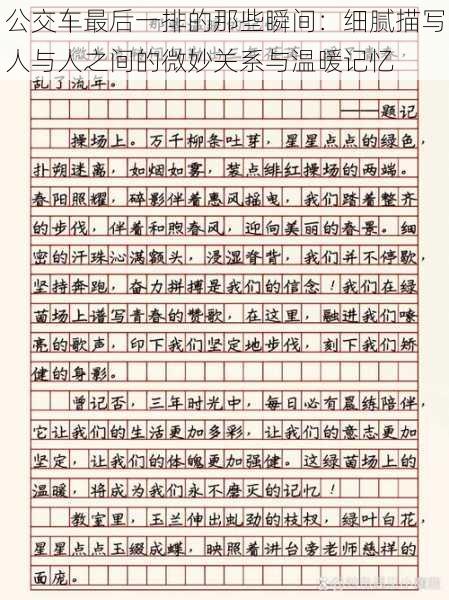 公交车最后一排的那些瞬间：细腻描写
人与人之间的微妙关系与温暖记忆
乱了流年。
——题记
操场上。万千柳条吐芽，星星点点的绿色，
扑朔迷离，如烟如雾，装点绯红操场的两端。
春阳照耀，碎影伴着惠风摇曳，我们踏着整齐
的步伐，伴着和煦春风，迎向美丽的春景。细
密的汗珠沁满额头，浸湿脊背，我们并不停歇，
坚持奔跑，奋力拼搏是我们的信念！我们在绿
茵场上谱写青春的赞歌，在这里，融进我们嘹
亮的歌声，印下我们坚定地步伐，刻下我们矫
健的身影。
曾记否，三年时光中，每日必有晨练陪伴，
它让我们的生活更加多彩，让我们的意志更加
坚定，让我们的体魄更加强健。这绿茵场上的
温暖，将成为我们永不磨灭的记忆！
教室里，玉兰伸出虬劲的枝杈，绿叶白花，
星星点点玉缀成蝶，映照着讲台旁老师慈样的
面庞。